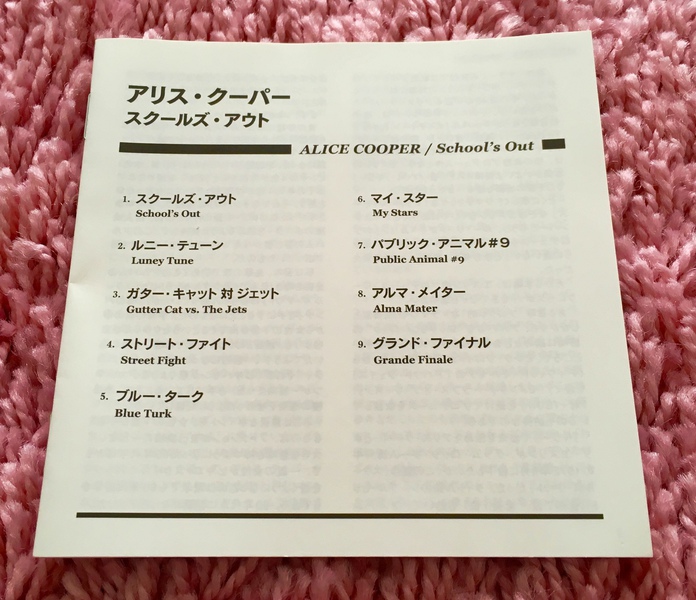 アリス・クーパー
スクールズ・アウト
ALICE COOPER / School's Out
1. スクールズ・アウト
School's Out
2. ルニー・テューン
Luney Tune
3. ガター・キャット 対 ジェット
Gutter Cat vs. The Jets
4. ストリート・ファイト
Street Fight
5. ブルー・ターク
Blue Turk
6. マイ・スター
My Stars
7. パブリック・アニマル#9
Public Animal #9
8. アルマ・メイター
Alma Mater
9. グランド・ファイナル
Grande Finale